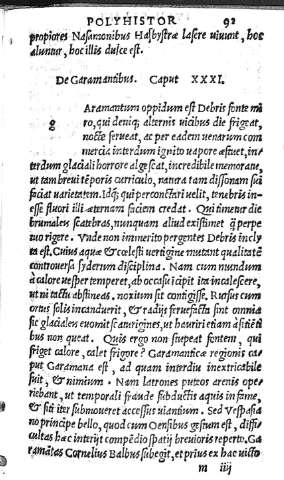 POLYHISTOR 92
propiores Nasamonibus Hasbystræ lasere uiuunt, hoc
aluntur, hoc illis dulce est.
De Garamantibus. Caput XXXI.
g Aramantum oppidum est Debris fonte mi
ro, qui deniq; alternis uicibus die frigeat,
nocte ferueat, ac per eadem uenarum com
mercia interdum ignito uapore æstuet, in-
terdum glaciali horrore algescat, incredibile memoratu,
ut tam breui tẽporis curriculo, natura tam dissonam sui
faciat uarietatem. Idq; qui percontari uelit, tenebris in-
esse fluori illi æternam faciem credat. Qui timetur die
brumales scatebras, nunquam aliud existimet q̃ perpe
tuo rigere. Vnde non immerito pergentes Debris incly
ta est. Cuius aquæ & cœlesti uertigine mutant qualitatẽ
controuersa syderum disciplina. Nam cum mundum
à calore uesper temperet, ab occasu icipit ita incalescere,
ut ni tactu abstineas, noxium sit contigisse. Rursus cum
ortus solis incanduerit, & radijs feruefacta sint omnia
sic glaciales euomit scaturigines, ut hauriri etiam à sitiẽti
bus non queat. Quis ergo non stupeat fontem, qui
friget calore, calet frigore? Garamanticæ regionis ca-
put Garamana est, ad quam interdiu inextricabile
fuit, & nimium. Nam latrones puteos arenis ope-
riebant, ut temporali fraude subductis aquis infame,
& siti iter submoueret accessus uiantium. Sed Vespasia
no principe bello, quod cum Oensibus gestum est, diffi-
cultas hæc interijt compẽdio spatij breuioris reperto. Ga
ramãtas Cornelius Balbus subegit, et prius ex hac uicto
m iiij